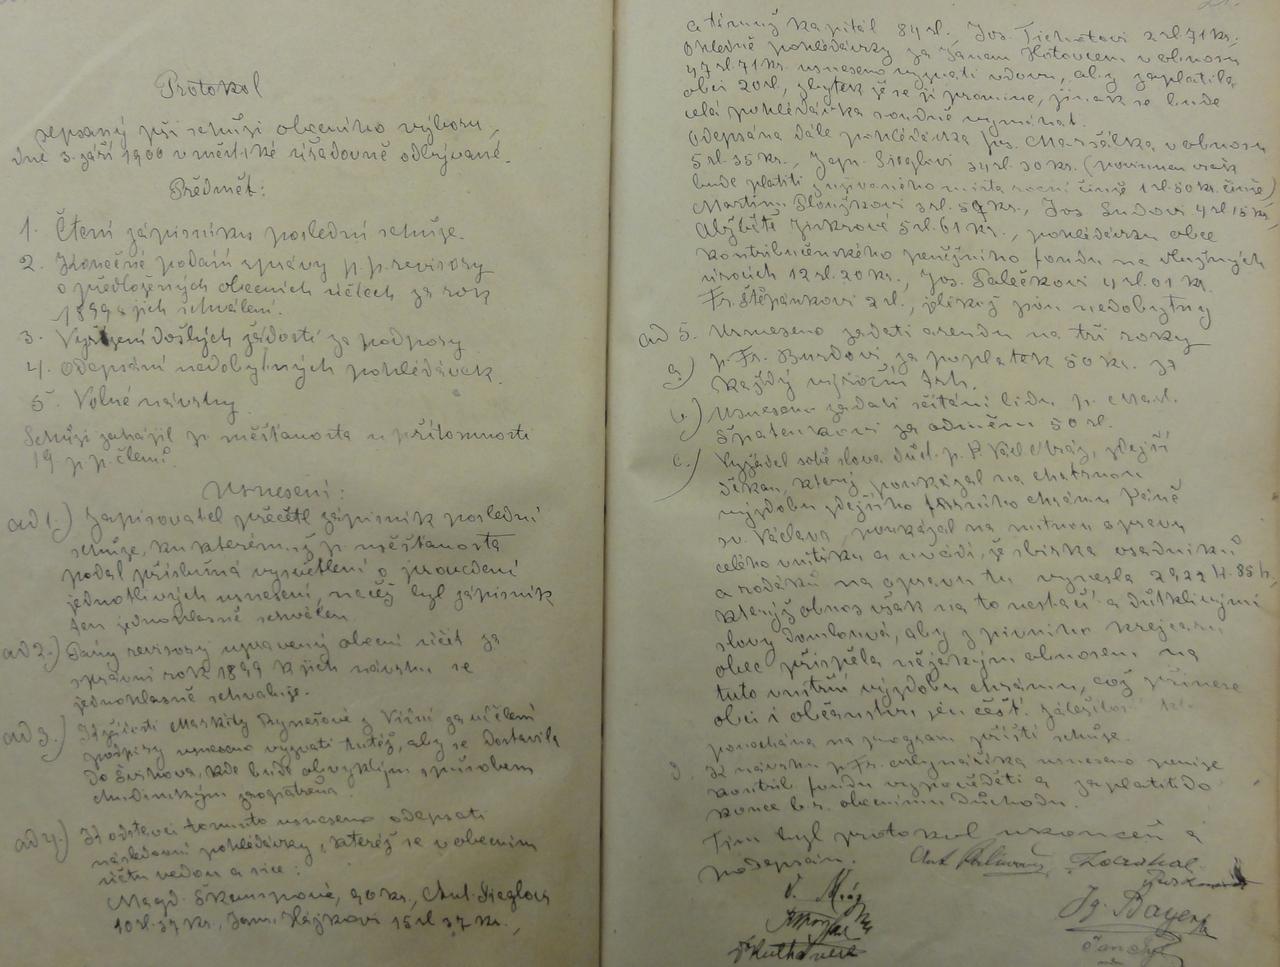 Protokol
sepsaný při schůzi obecního výboru,
dne 3. září 1900 v městské úřadovně odbývané.
Předmět:
1. Čtení zápisníku poslední schůze.
2. Konečné podání zprávy p.p. revisory
o předložených obecních účtech za rok
1899 a jich schválení.
3. Vyřízení došlých žádostí za podpory
4. Odepsání nedobytných pohledávek.
5. Volné návrhy.
Schůzi zahájil p. měšťanosta u přítomnosti
19 p.p. členů.
Usnesení:
ad 1.) Zapisovatel přečetl zápisník poslední
schůze, ku kterémuž p. měšťanosta
podal příslušná vysvětlení o provedení
jednotlivých usnesení, načež byl zápisník
ten jednohlasně schválen.
ad 2.) Pány revisory upravený obecní účet za
správní rok 1899 k jich návrhu se
jednohlasně schvaluje.
ad 3.) K žádosti Markéty z za udělení
podpory usneseno vyzvati tutéž, aby se dostavila
do kde bude obvyklým způsobem
chudinským zaopatřena.
ad 4.) K odstavci tomuto usneseno odepsati
následovní pohledávky, kteréž se v obecním
účtu vedou a sice:
Magd. 90 kr., Ant. Sieglovi
10 zl. 37 kr., Jana Hájkovi 15 zl 37 kr.,
a kapitál 84 zl., Jos. Tichotovi 2 zl. 71 kr.
Ohledně pohledávky za Janem v obnosu
47 zl. 71 kr. usneseno vyzvati vdovu, aby zaplatila
obci 20 zl., zbytek že se jí promine, jinak se bude
celá pohledávka soudně vymáhat.
Odepsána dále pohledávka Jos. Maršálka v obnosu
5 zl. 35 kr., Sieglovi 34 zl. 30 kr. (povinnen však
bude platiti z užívaného místa roční činže 1 zl. 50 kr. činže)
Martinu 3 zl. 59 kr., Jos. 4 zl 15 kr,
Alžbětě 5 zl. 61 kr., pohledávku obce
kontribučenského peněžního fondu na dlužných
úrocích 12 zl. 20 kr., Jos. Palečkovi 4 zl. 01 kr.
Fr. Štěpánkovi 2 zl., jelikož jsou nedobytny
ad 5. Usneseno zadati arendu na tři roky
a) p. Fr. Burdovi, za poplatek 50 kr. za
každý výroční trh.
b) Usneseno zadati sčítání lidu p. Mat.
Špatenkovi za odměnu 50 zl.
c.) Vyžádal sobě slova důst. p. P. Václ. Mráz, zdejší
děkan, který poukázal na chatrnou
výzdobu zdejšího farního chrámu Páně
sv. Václava, poukázal na nutnou opravu
celého vnitřku a uvádí, že sbírka osadníků
a rodáků na opravu tu vynesla 2422 K. 85 h,
kterýž obnos však na to nestačí a důtklivými
slovy domlouvá, aby z pivního krejcaru
obec přispěla nějakým obnosem na
tuto vnitřní výzdobu chrámu, což přinese
obci i občanstvu jen čest. Záležitost ta
ponechána na program příští schůze.
d. K návrhu p. Fr. usneseno peníze
kontrib. fondu vypověděti a zaplatiti do
konce b.r. obecnímu důchodu.
Tím byl protokol ukončen a
podepsán.
V. Mráz
Ig. Bayer